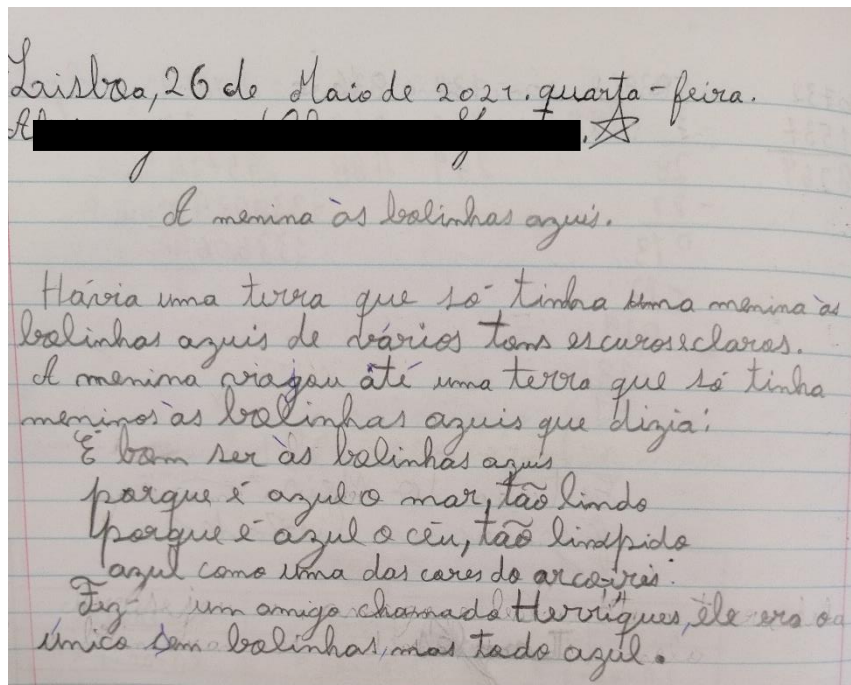 Lisboa, 26 de Maio de 2021. quarta-feira.
A menina às bolinhas azuis.
Hávia uma terra que só tinha uma menina às
bolinhas azuis de vários tons escuros e claros.
A menina viajou até uma terra que só tinha
meninos às bolinhas azuis que dizia:
É bom ser às bolinhas azuis
porque é azul o mar, tão lindo
porque é azul o céu, tão
azul como uma das cores do arco-iris.
Fez um amigo chamado Herriques, ele era o
único sem bolinhas, mas todo azul.